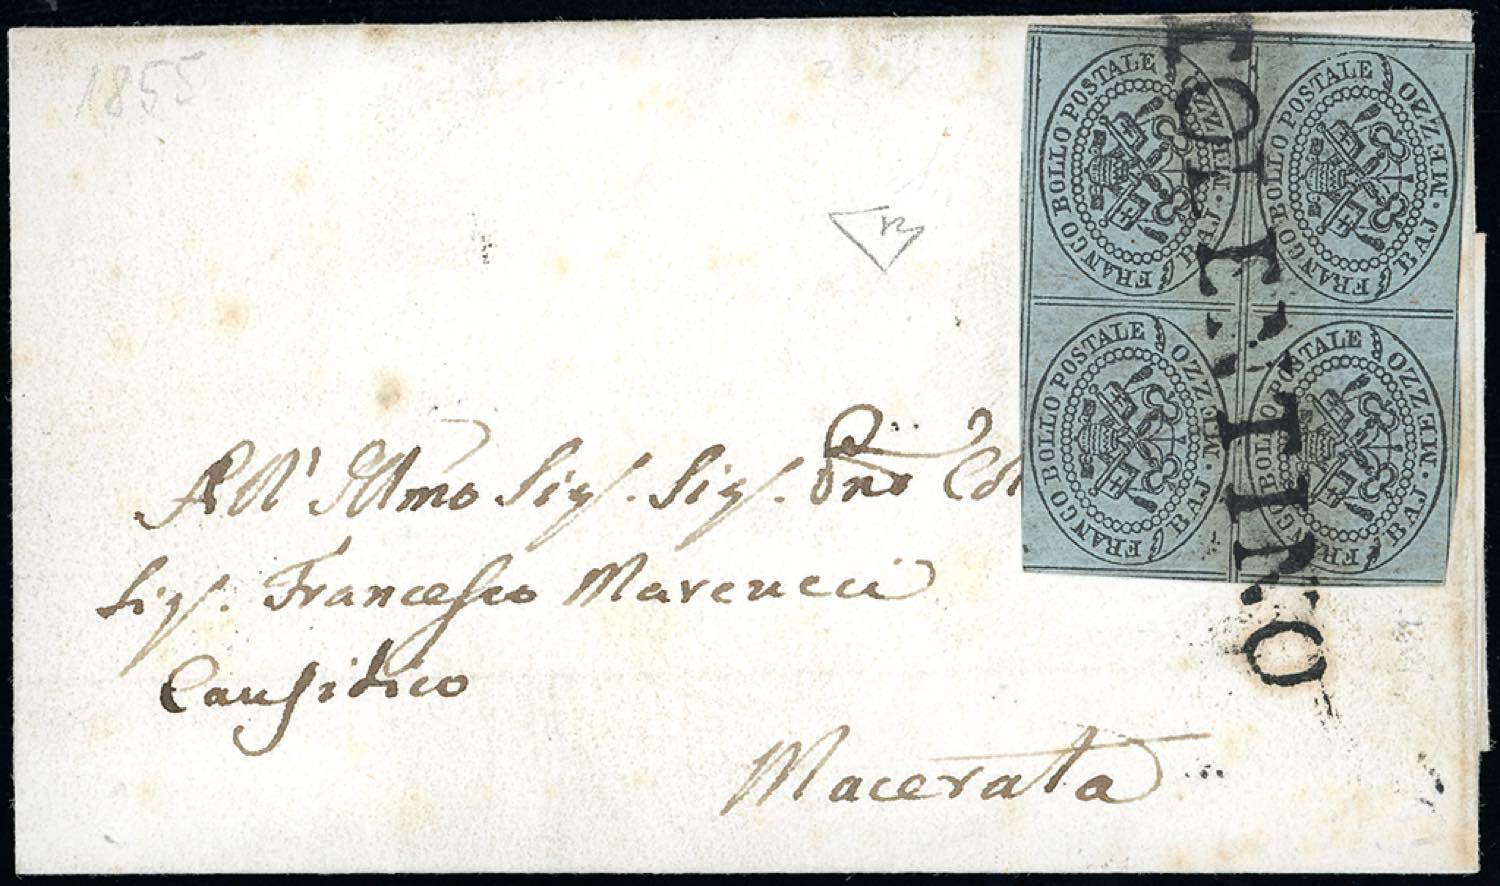 1855
FRANCO BOLLO POSTALE BAJ · MEZZO
FRANCO BOLLO POSTALE BAJ · MEZZO
FRANCO BOLLO POSTALE BAJ · MEZZO
FRANCO BOLLO POSTALE BAJ · MEZZO
TOLENTINO
All' Illmo Sig. Sig. Pne Col
Sig. Francesco Marcucci
Causidico
Macerata